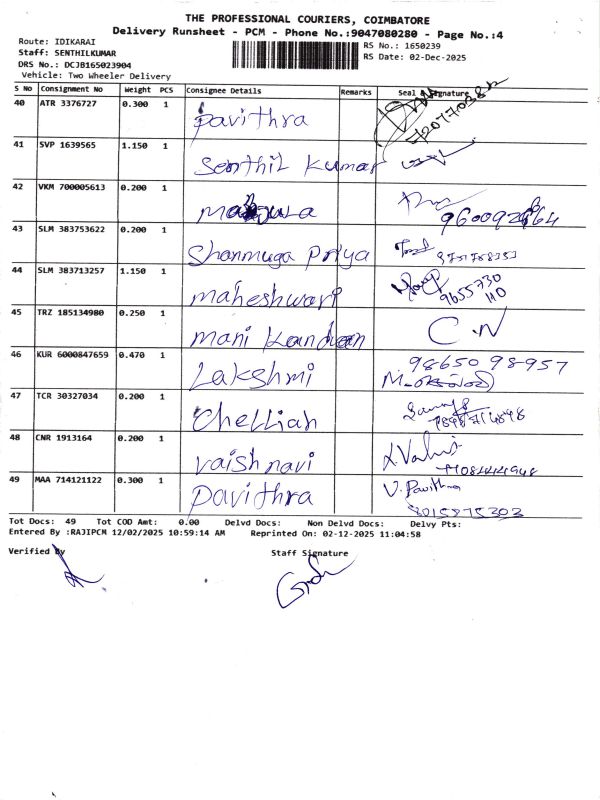 THE PROFESSIONAL COURIERS, COIMBATORE
Delivery Runsheet - PCM - Phone No.:9047080280 - Page No.:4
Route: IDIKARAI
RS No.: 1650239
Staff: SENTHILKUMAR
RS Date: 02-Dec-2025
DRS No.: DCJB165023904
Vehicle: Two Wheeler Delivery
S No Consignment No Weight PCS Consignee Details Remarks Seal & Signature
40 ATR 3376727 0.300 1 Pavithra
41 SVP 1639565 1.150 1 Senthil Kumar
42 VKM 700005613 0.200 1
43 SLM 383753622 0.200 1 Shanmuga Priya
44 SLM 383713257 1.150 1 maheshwari
45 TRZ 185134980 0.250 1 mani Kandan C.N
46 KUR 6000847659 0.470 1 Lakshmi 98650 98957
47 TCR 30327034 0.200 1 Chelliah
48 CNR 1913164 0.200 1 vaishnavi
49 MAA 714121122 0.300 1 Pavithra V. Pavithra
Tot Docs: 49 Tot COD Amt: 0.00 Delvd Docs: Non Delvd Docs: Delvy Pts:
Entered By :RAJIPCM 12/02/2025 10:59:14 AM Reprinted On: 02-12-2025 11:04:58
Verified By Staff Signature